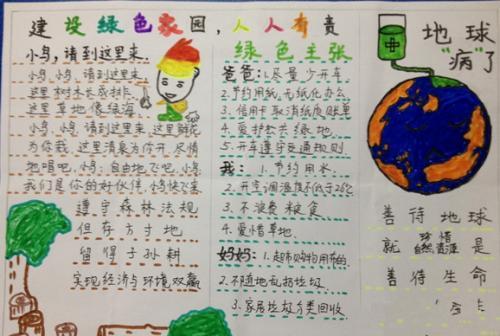 建设绿色家园，人人有责
小鸟，请到这里来
小鸟，小鸟，请到这里来
这里树木长成排
这里草地像绿海
小鸟，小鸟，请到这里来，这里鲜花
为你栽，这里清泉为你开，尽情
地唱吧，小鸟；自由地飞吧，小鸟
我们是你的好伙伴，小鸟快飞来
遵守森林法规
但存方寸地
留得子孙耕
实现经济与环境双赢
绿色主张
爸爸：1.尽量少开车
2.节约用纸，无纸化办公
3.信用卡取消纸质账单
4.爱护公共绿地
5.开车遵守交通规则
我：1.节约用水
2.开空调温度不低于26℃
3.不浪费粮食
4.爱惜草地
妈妈：1.超市购物用布包
2.不随地乱扔垃圾
3.家居垃圾分类回收
地球
"病"了
善待地球
就是
珍惜
自然资源
善待生命